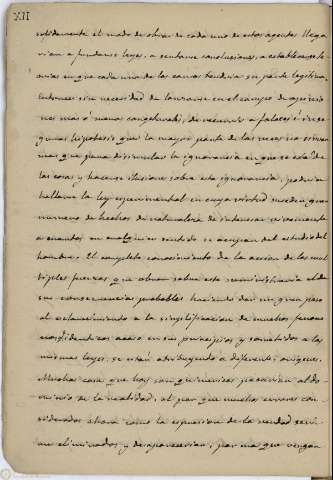 XII
solidamente el modo de obrar de cada uno de estos agentes llega
rian a fundarse leyes, a sentarse conclusiones, a establecerse teo
rias en que cada una de las causas tendria su parte legitima.
Entonces sin necesidad de lanzarse en el campo de
nes mas ó menos de recurrir a falaces é inse
guras hipotesis que la mayor parte de las veces no sirven
mas que para disimular la ignorancia en que se está de
las cosas y hacerse ilusiones sobre esta ignorancia, podrian
hallarse la ley esperimental en cuya virtud suceden gran
numero de hechos de naturaleza de interesar vivamente
a cuantos en cualquier sentido se ocupan del estudio del
hombre. El completo conocimiento de la accion de las mul
tiples fuerzas que obran sobre este suministraria el de
sus consecuencias probables haciendo dar un gran paso
al esclarecimiento a la simplificacion de muchos fenome
nos identicos acaso en sus principios y sometidos a las
mismas leyes, se estan atribuyendo a diferentes origenes.
Muchas cosas que hoy son quimericas pasarian al do
minio de la realidad, al par que muchos errores con
siderados ahora como la espresion de la verdad serian
eliminados y desaparecerian; por mas que vengan